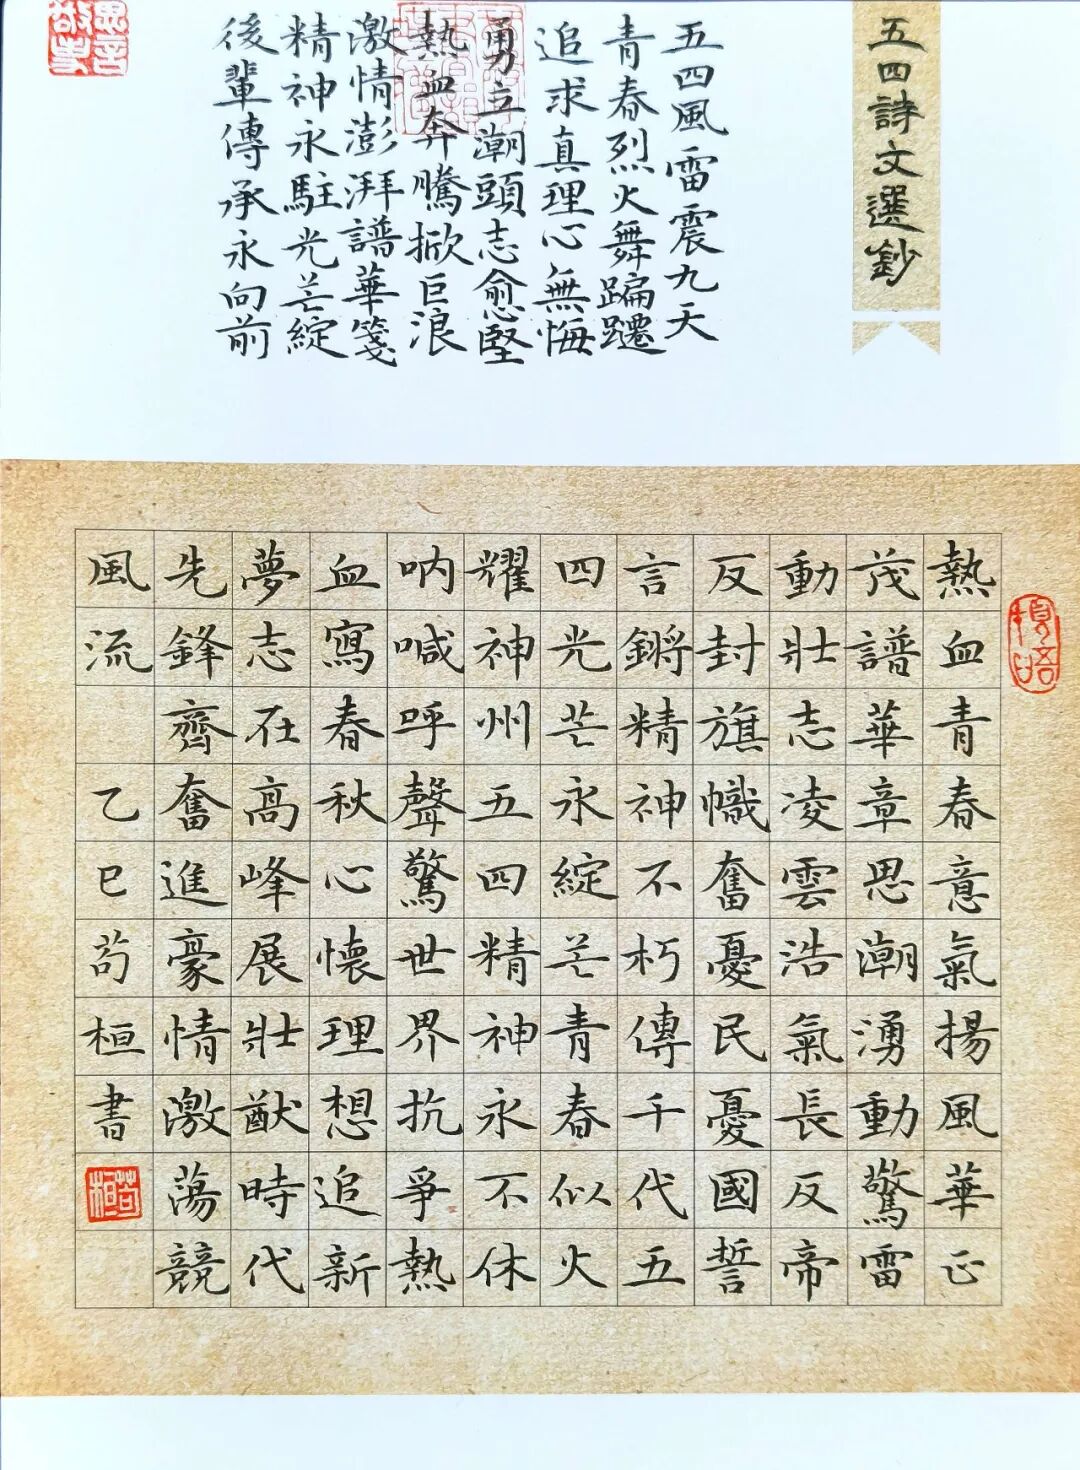 五四詩文選鈔
五四風雷震九天
青春烈火舞蹁躚
追求真理心無悔
勇立潮頭志愈堅
熱血奔騰掀巨浪
激情澎湃譜華箋
精神永駐光芒綻
後輩傳承永向前
熱血青春意氣揚風華正
茂譜華章思潮湧動驚雷
動壯志凌雲浩氣長反帝
反封旗幟奮憂民憂國誓
言鏘精神不朽傳千代五
四光芒永綻芒青春似火
耀神州五四精神永不休
吶喊呼聲驚世界抗爭熱
血寫春秋心懷理想追新
夢志在高峰展壯猷時代
先鋒齊奮進豪情激蕩競
風流 乙巳苟桓書